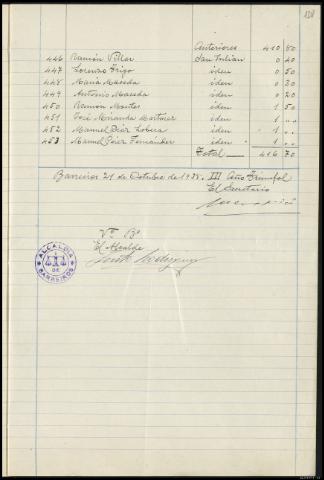 128
Anteriores 410 80
446 Ramón Pillar San Julian 0 40
447 Lorenzo Trigo iden 0 50
448 Maria Maseda iden 0 30
449 Antonio Maseda iden 0 20
450 Ramon Montes iden 1 50
451 José Miranda Martinez iden 1 ..
452 Manuel Diaz Lobera iden 1 ..
453 Manuel Pérez Fernández iden 1 ..
Total 416 70
Barreiros 21 de Octubre de 1938. III Año Triunfal
El Secretario
Vº Bº
El Alcalde
ALCALDIA DE BARREIROS